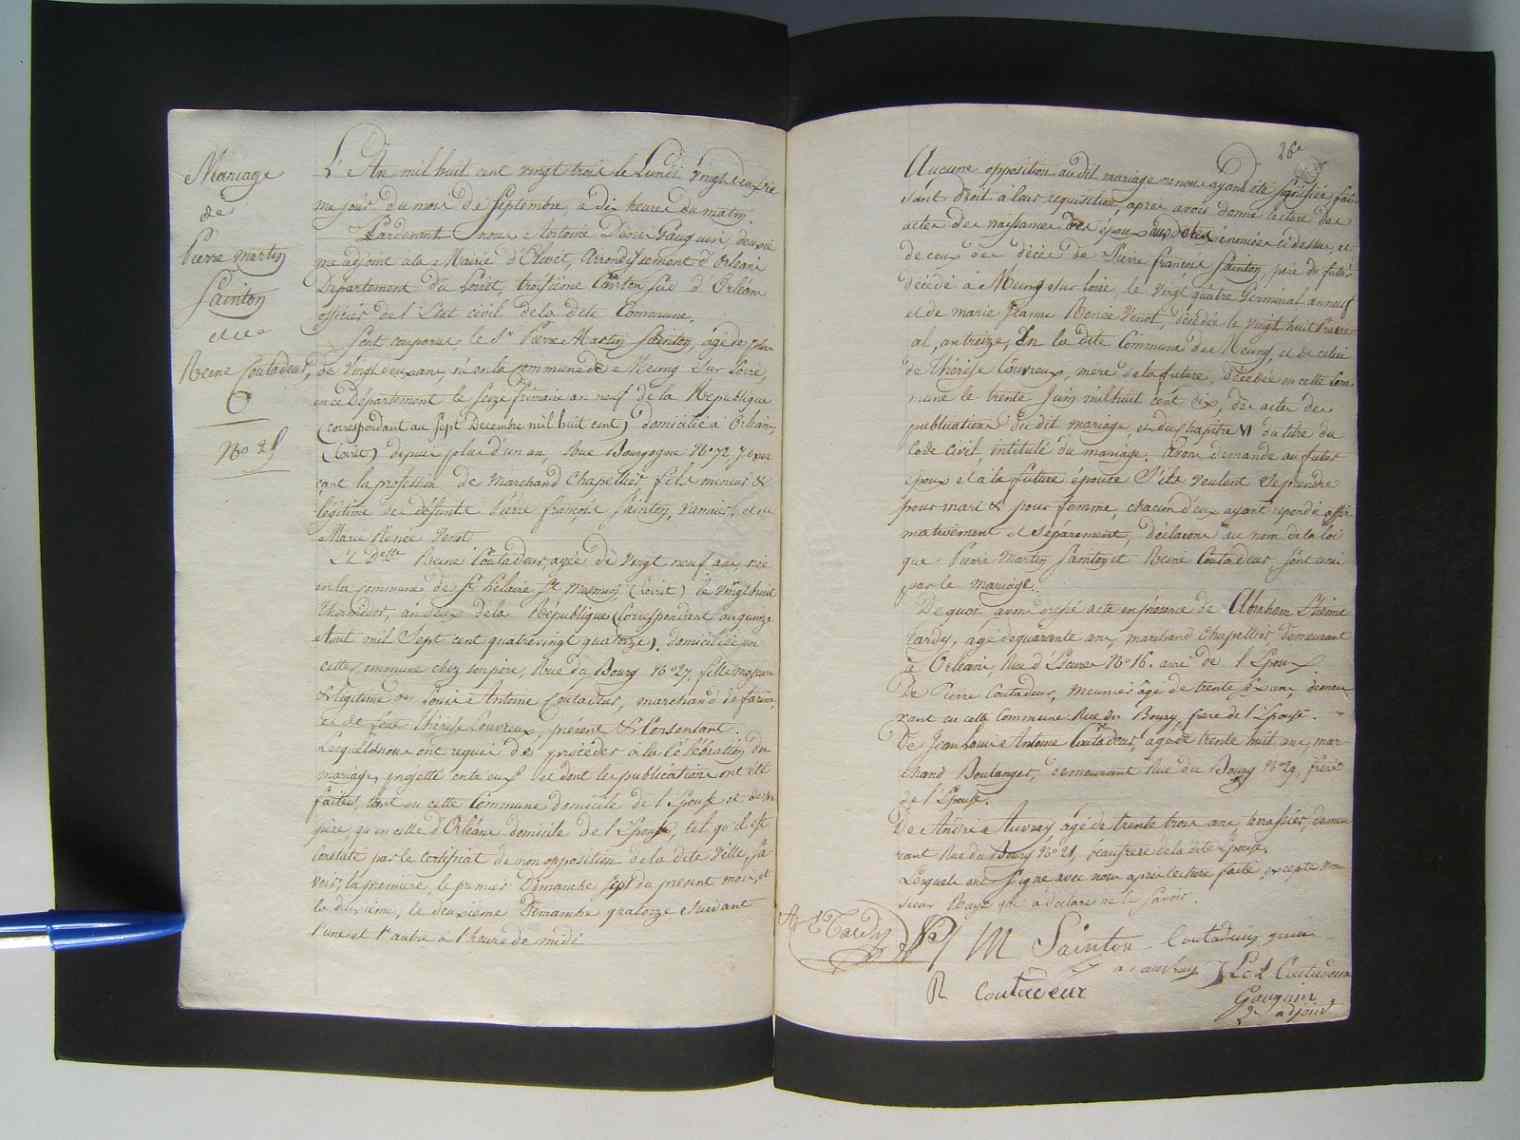 Mariage
de
Pierre martin
Sainton
avec
Reine Coutadeur,
6
No 28
L'An mil huit cent vingt trois le Lundi Vingt deuxie
me jour du mois de Septembre, a dix heures du matin.
Pardevant nous Antoine Désiré Gauguin, deuxie
me adjoint a la Mairie d'Olivet, Arrondissement d'Orléans
Département du Loiret, troisieme Canton Sud d'Orléans
officier de l'Etat civil de la dite Commune,
Sont comparus le Sr Pierre Martin Sainton, agé de plus
de Vingt deux ans, né en la commune de Meung Sur Loire,
en ce Département le Seize frimaire an neuf de la Republique
(correspondant au Sept Decembre mil huit cent) domicilié à Orléans,
(Loiret) depuis plus d'un an, Rue Bourgogne No 72, y exer
çant la profession de Marchand Chapellier fils mineur &
légitime de défunts Pierre françois Sainton, et de
Marie Renée Venot
Et Delle Reine Coutadeur, agée de Vingt neuf ans, née
en la commune de St hilaire St Mesmin (Loiret) le Vingt huit
thermidor, an deux de la République (Correspondant au quinze
Aout mil Sept cent quatrevingt quatorze). domiciliée en
cette commune chez son père, Rue du Bourg No 27, fille majeure
& légitime de Louis Antoine Coutadeur, marchand de farine,
et de feue Thérèse Couvreux, présent & Consentant.
Lesquels nous ont requis de procéder à la célébration du
mariage projetté entr'eux et dont les publications ont été
faites, tant en cette Commune domicile de l'Epouse et de son
père, qu'en celle d'Orléans domicile de l'Epoux, tel qu'il est
Constaté par le Certificat de non opposition de la dite Ville, Sa
voir, la premiere, le premier Dimanche Sept du présent mois, et
la deuxieme, le deuxieme Dimanche quatorze Suivant
l'une et l'autre à l'heure de midi
28e
Aucune opposition audit mariage ne nous ayant été signifiée, fai
sant droit à leur requisition, apres avoir donné lecture des
actes de naissances des époux énoncés ci dessus, et
de ceux de décès de Pierre françois Sainton, père du futur
décédé à Meung Sur Loire, le Vingt quatre Germinal an neuf
et de marie Jeanne Renée Venot, décédée le vingt huit Prairi
al, an treize, En la dite Commune de Meung, et de celui
de Thérèse Couvreux, mere de la future, décédée en cette Com
mune le trente Juin mil huit cent dix, des actes de
publications du dit mariage et du chapitre VI du titre du
Code Civil intitulé du mariage. Avons demandé au futur
époux et à la future épouse S'ils veulent Se prendre
pour mari & pour femme, chacun d'eux ayant repondu affir
mativement et Séparément, déclarons au nom de la loi
que Pierre Martin Sainton et Reine Coutadeur Sont unis
par le mariage.
De quoi, avons dressé acte en présence de Abraham Etienne
tardy, agé de quarante ans, marchand Chapellier demeurant
à Orléans, Rue d'Escures No 16. ami de l'Epoux
De Pierre Coutadeur, Meunier agé de trente dix ans, demeu
rant en cette Commune Rue du Bourg, frere de l'Epouse.
De Jean Louis Antoine Coutadeur, agé de trente huit ans, mar-
chand Boulanger, demeurant Rue du Bourg No 29, frère
de l'Epouse.
De André Auvray agé de trente trois ans, terrassier, demeu
rant Rue du Bourg No 21, beaufrere de la dite Epouse.
Lesquels ont Signé avec nous apres lecture faite, excepté
qui a déclaré ne le Savoir.
A E Tardy P M Sainton Coutadeur
a auvray L A Coutadeur
R Coutadeur
Gauguin
2e adjoint